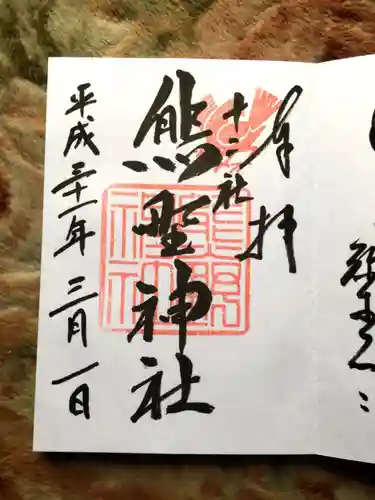 奉拝
十二社
熊野神社
平成三十一年三月一日